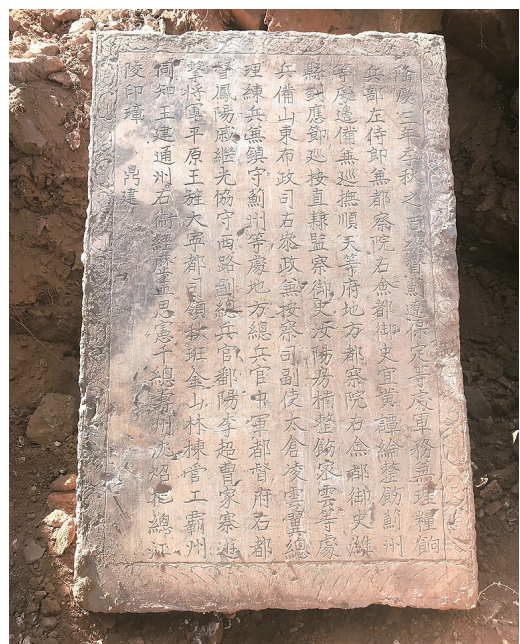 隆慶三年季秋之吉總督薊遼保定等處軍務兼理糧餉
兵部左侍郎兼都察院右僉都御史宜黃譚綸整飭薊州
等處邊備兼巡撫順天等府地方都察院右僉都御史濰
縣劉應節巡按直隸監察御史汝陽房楠整飭密雲等處
兵備山東布政司右參政兼按察司副使太倉凌雲翼總
理練兵兼鎮守薊州等處地方總兵官中軍都督府右都
督鳳陽戚繼光協守西路副總兵官鄱陽李超曹家寨遊
擊將軍平原王旌大寧都司領秋班金山林棟管工霸州
同知王建通州右衛經歷孟思憲千總壽州沈炤把總江
陵印璋 鼎建